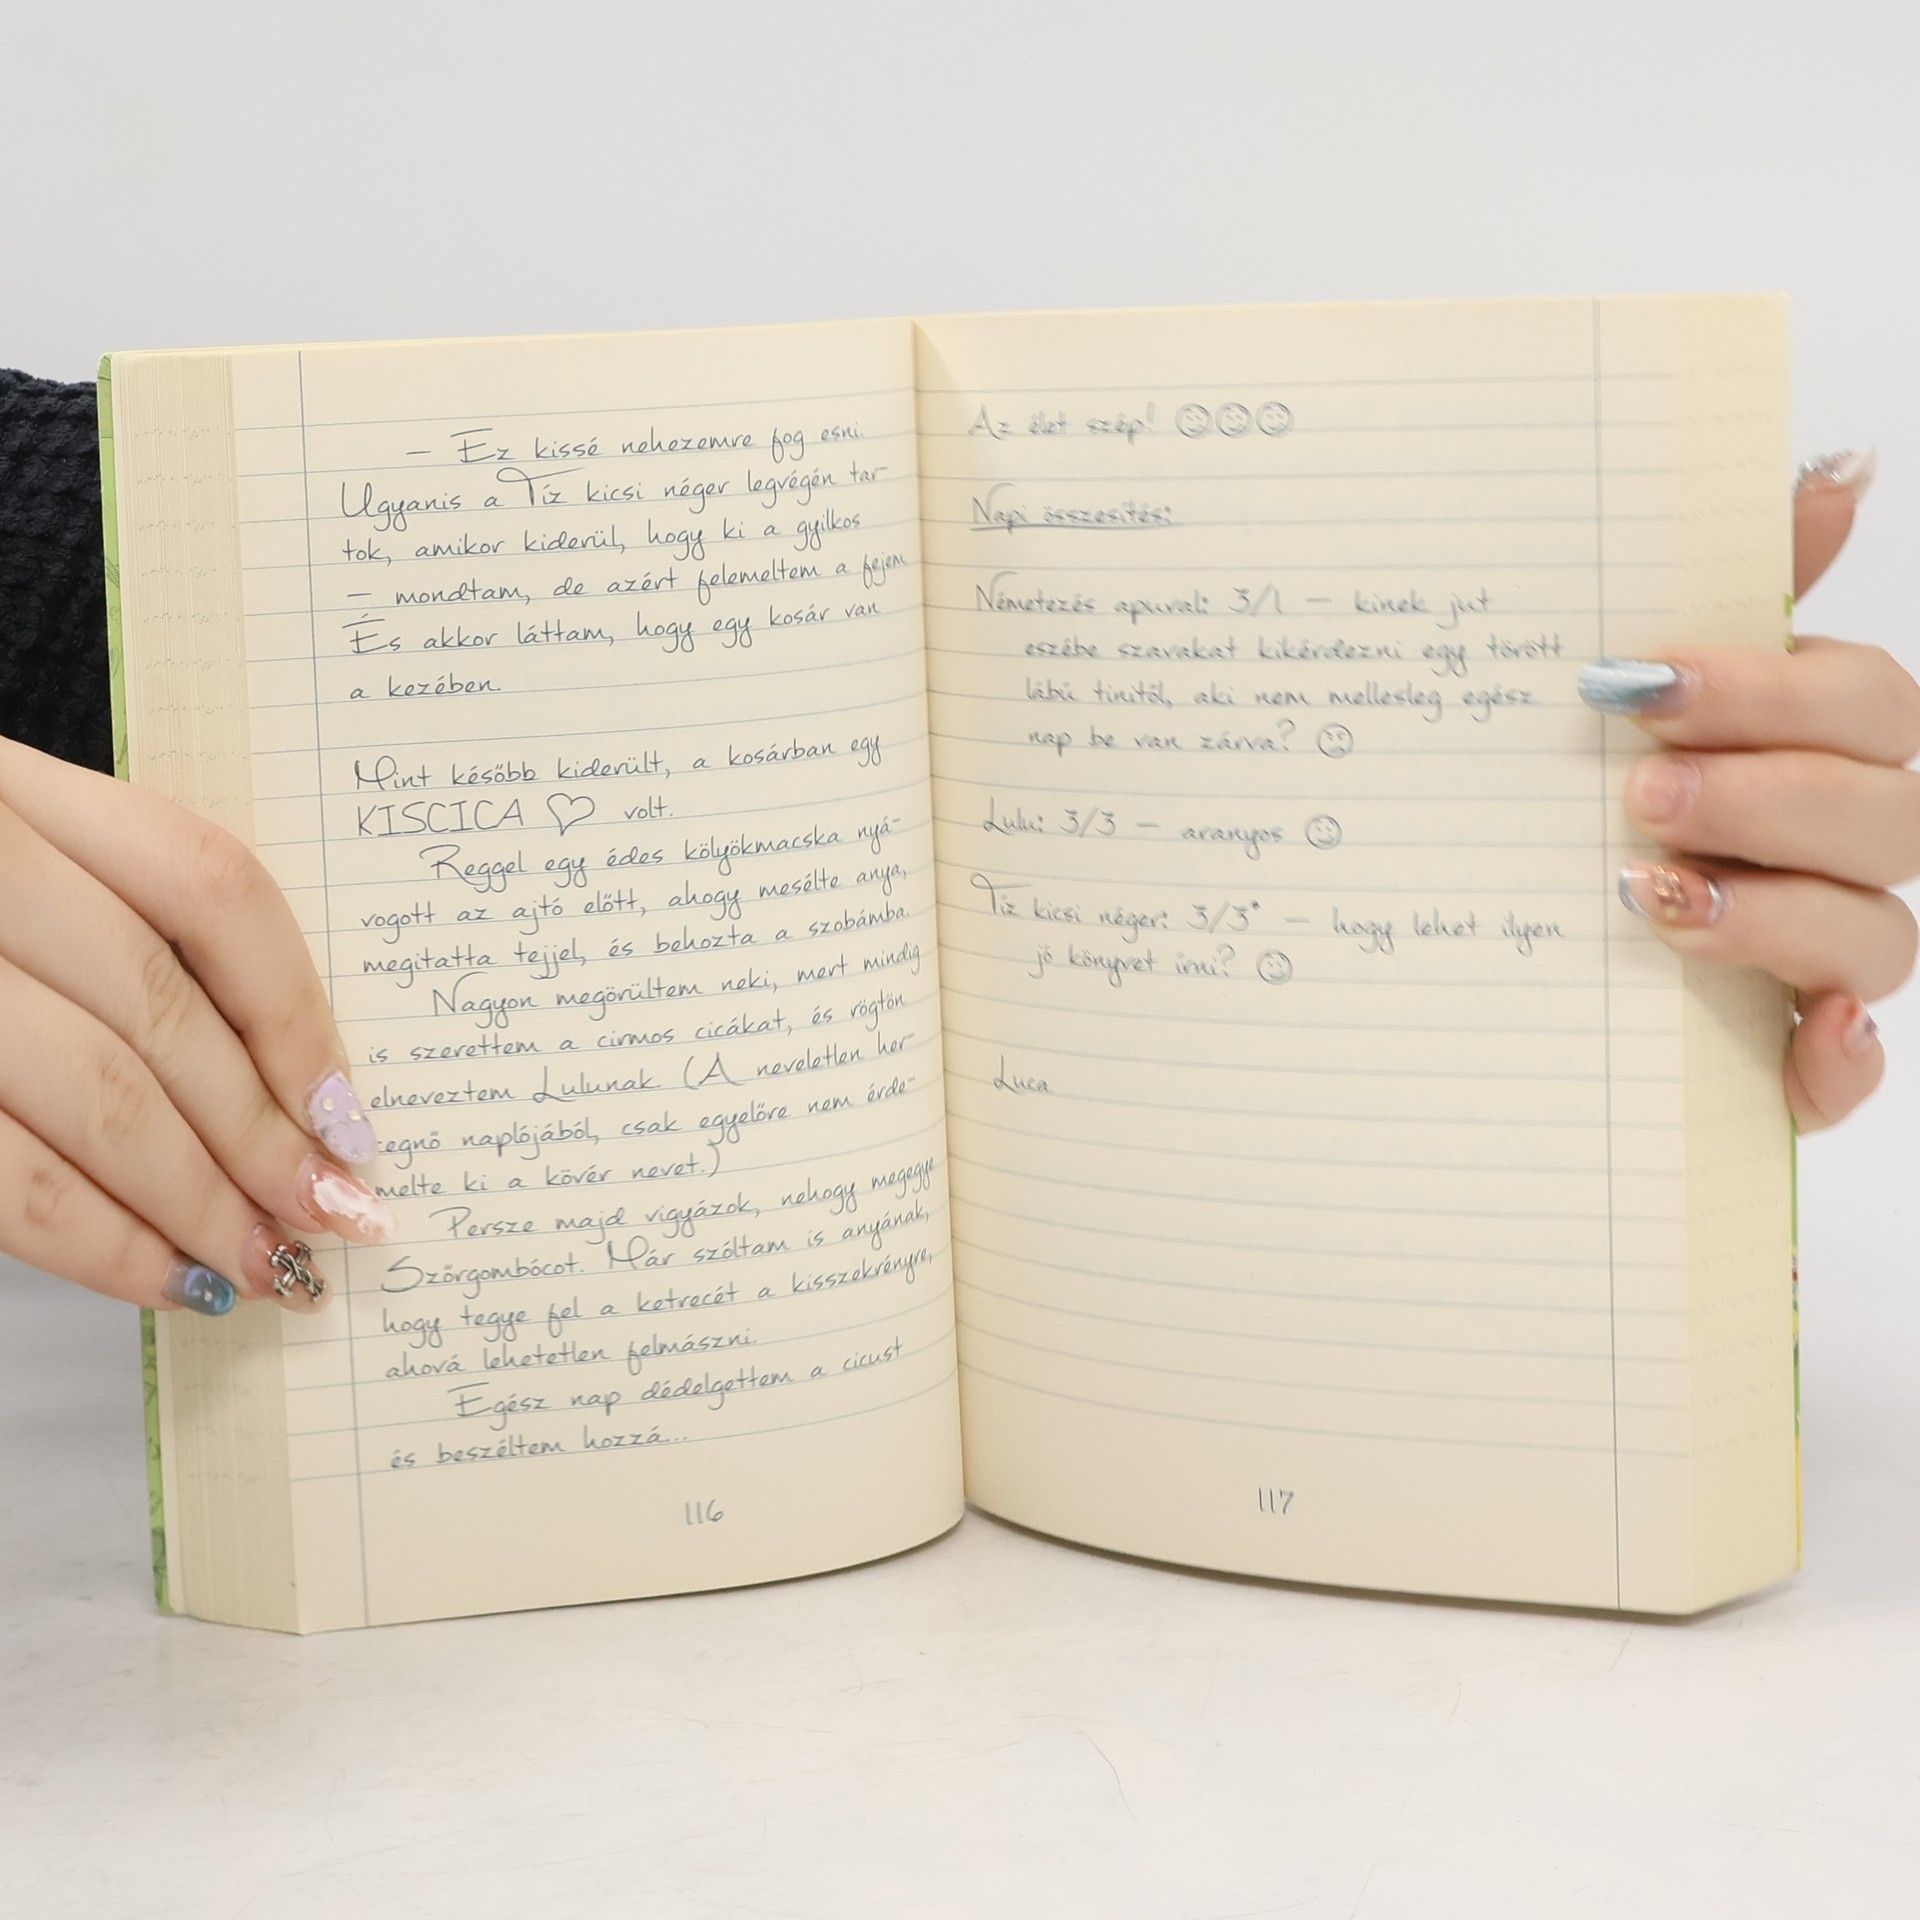 – Ez kissé nehezemre fog esni.
Ugyanis a Tíz kicsi néger legvégén tar-
tok, amikor kiderül, hogy ki a gyilkos
– mondtam, de azért felemeltem a fejem.
És akkor láttam, hogy egy kosár van
a kezében.
Mint később kiderült, a kosárban egy
KISCICA ♡ volt.
Reggel egy édes kölyökmacska nyá-
vogott az ajtó előtt, ahogy mesélte anya,
megitatta tejjel, és behozta a szobámba.
Nagyon megörültem neki, mert mindig
is szerettem a cirmos cicákat, és rögtön
elneveztem Lulunak (A neveletlen her-
cegnő naplójából, csak egyelőre nem érde-
melte ki a kövér nevet.)
Persze majd vigyázok, nehogy megegye
Szőrgombócot. Már szóltam is anyának,
hogy tegye fel a ketrecét a kisszekrényre,
ahová lehetetlen felmászni.
Egész nap dédelgettem a cicust
és beszéltem hozzá...
116
Az élet szép! ☺☺☺
Napi összesítés:
Németezés apuval: 3/1 – kinek jut
eszébe szavakat kikérdezni egy törött
lábú tinitől, aki nem mellesleg egész
nap be van zárva? ☹
Lulu: 3/3 – aranyos ☺
Tíz kicsi néger: 3/3* – hogy lehet ilyen
jó könyvet írni? ☺
Luca
117